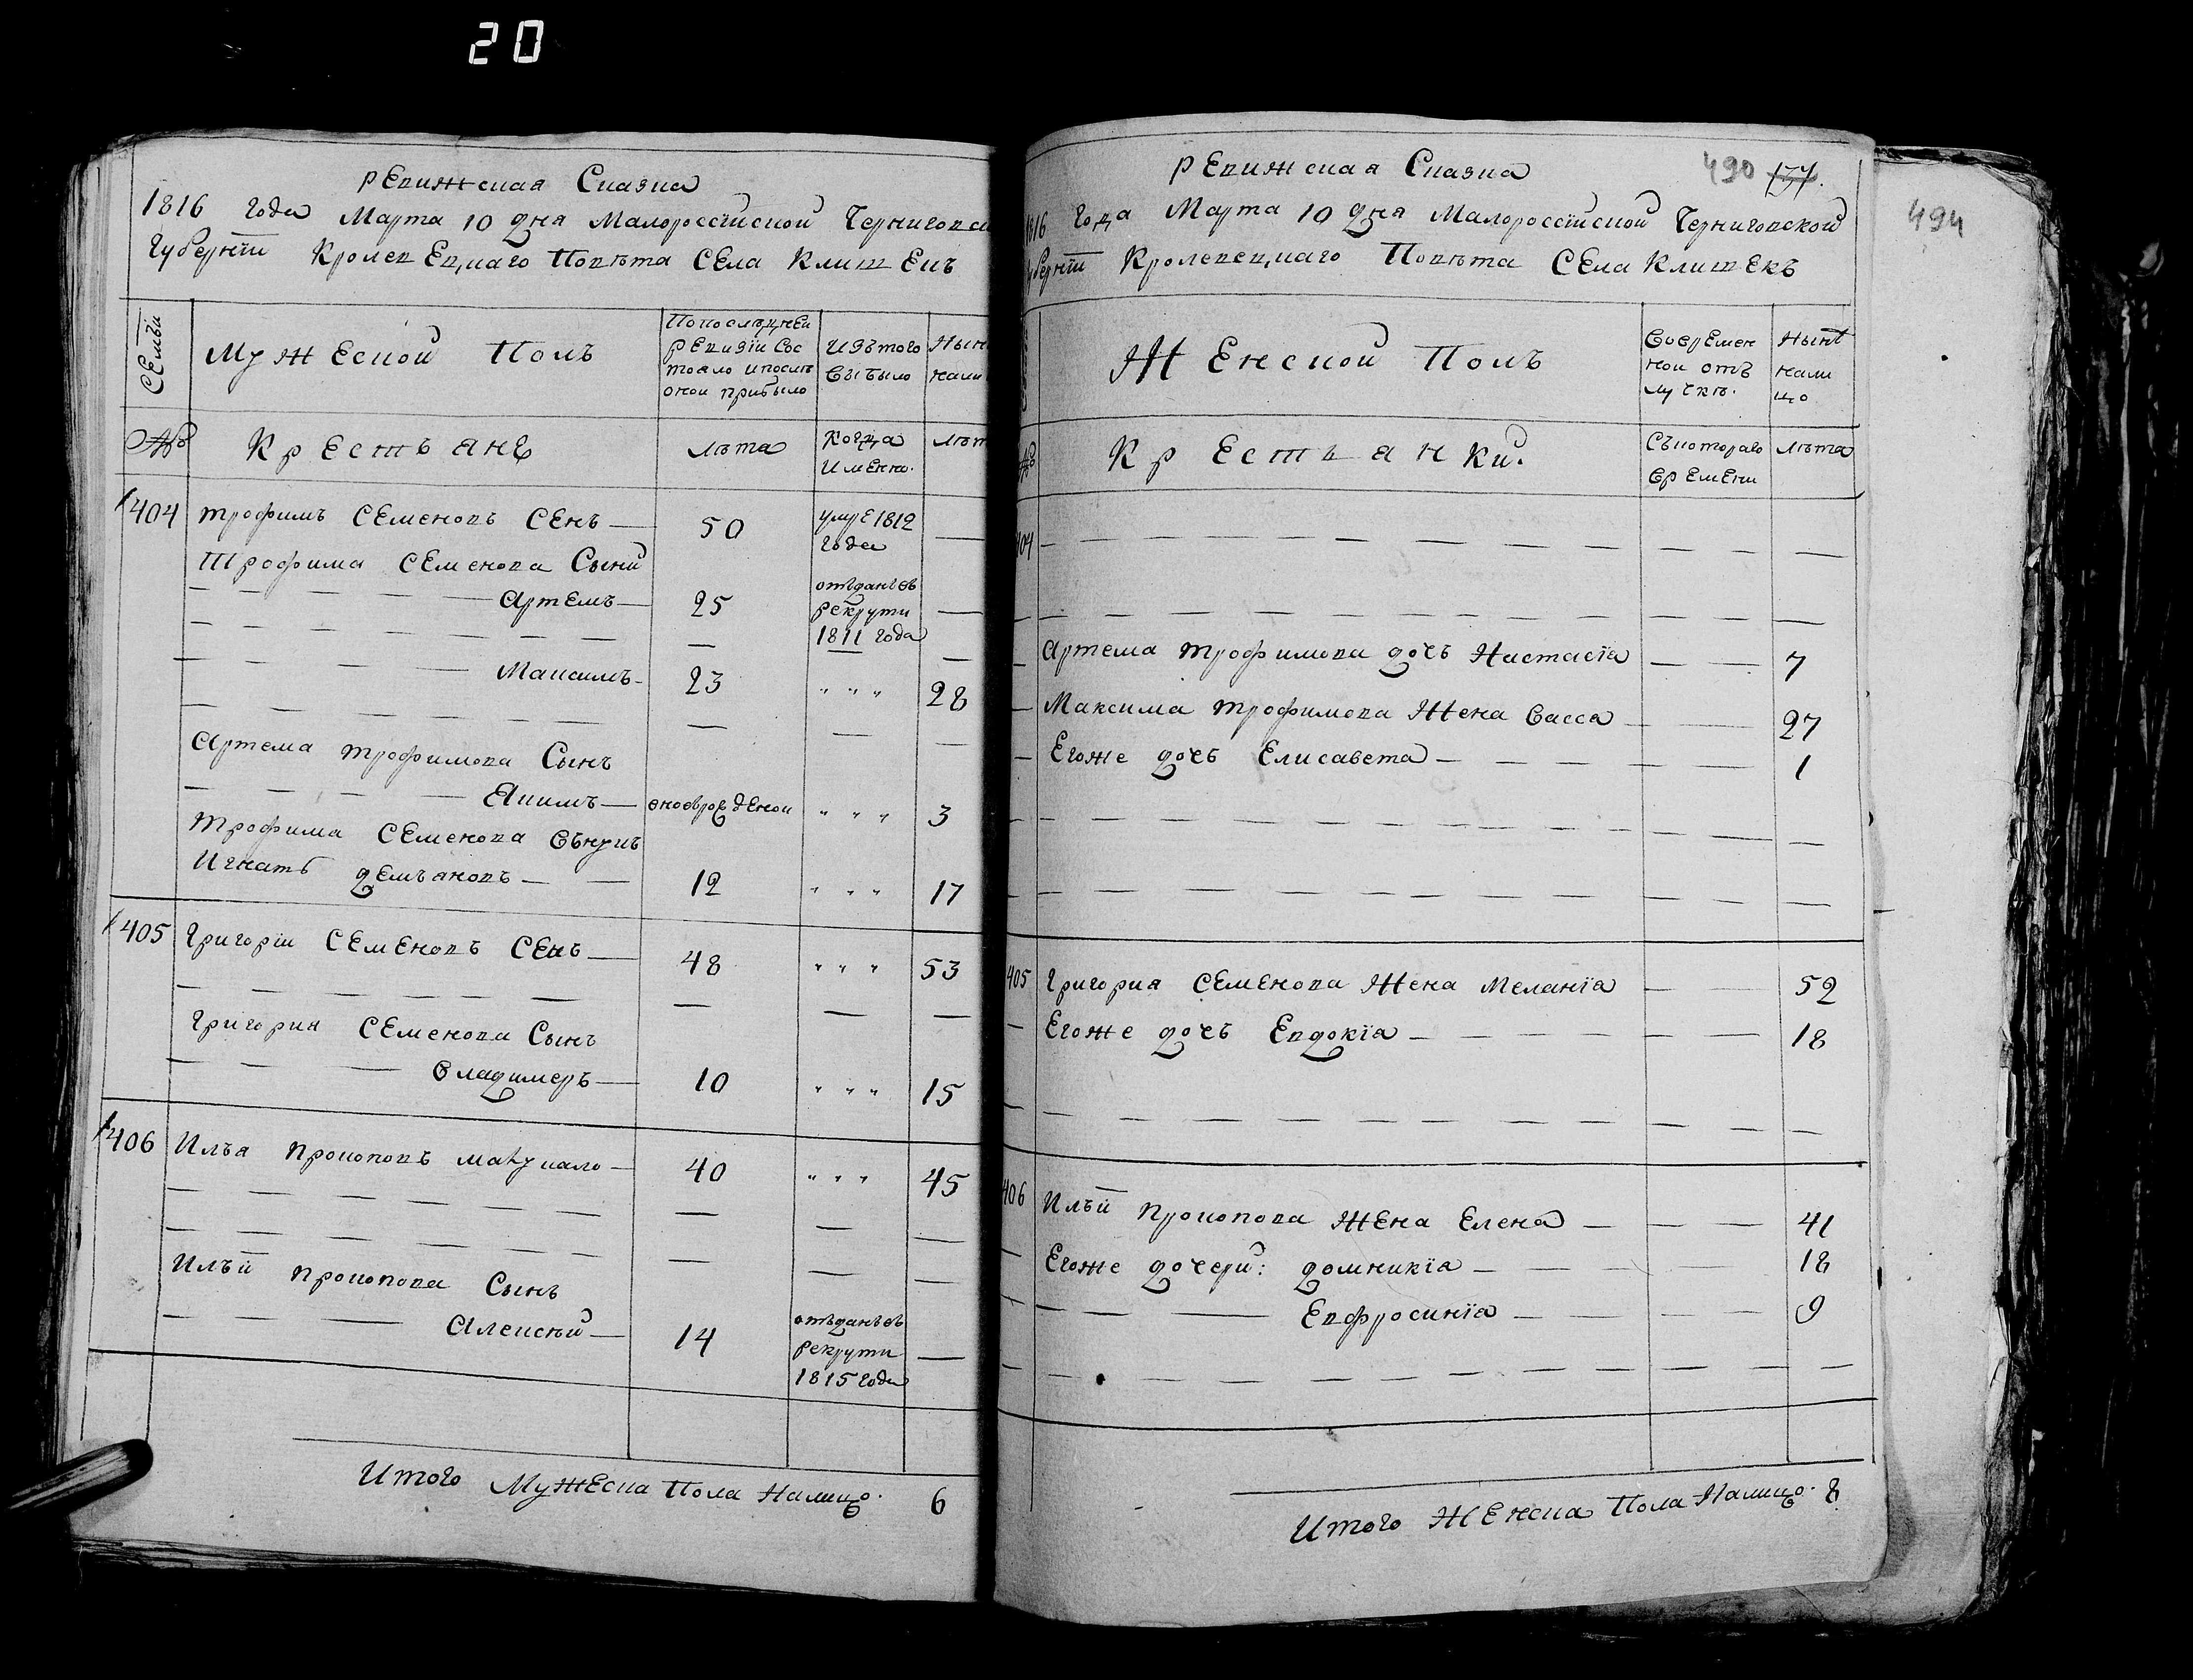 20
РЕвижская Сказка
1816 года Марта 10 дня Малороссїйской Чернигов
Губернїи Кролевецкаго Повѣта СЕла Клишекъ
СЕмьи
МужЕской Полъ
По последнеи
ревизїи Сос
тояло и после
оной прибыло
Изътого
Выбыло
Нын
нали
№
КрЕстьянѣ
лѣта
когда
имЕнно.
лѣт
404
трофимъ СЕменовъ СЕнъ
50
умре 1812
года
Трофима СЕменова Сыни
Артемъ
25
отъданъ въ
рекрути
1811 года
Максимъ
23
" " "
28
Артема трофимова Сынъ
Якимъ
вновьрожденои
" " "
3
Трофима СЕменова Внукъ
Игнатъ демъяновъ
12
" " "
17
405
Григорїи СЕменовъ СЕнъ
48
" " "
53
Григория СЕменова Сынъ
Владимеръ
10
" " "
15
406
Илья прокоповъ
40
" " "
45
Ильи прокопова Сынъ
Алексѣй
14
отъданъ въ
рекрути
1815 года
Итого МужЕска Пола Налицо.
6
РЕвижская Сказка
490
494
1816 года Марта 10 дня Малороссїйской Черниговской
Губернїи Кролевецкаго Повѣта СЕла Клишекъ
ЖЕнской Полъ
Воврѣмен
ной отъ
лучкѣ.
Нынѣ
нали
цо
КрЕстьянки.
Съкотораго
врЕмЕни
лѣта
404
Артема трофимова дочъ Настасїа
7
Максима трофимова Жена Васса
27
Егоже дочъ Елисавета
1
405
Григория СЕмЕнова Жена Меланїа
52
Егоже дочъ Евдокїа
18
406
Ильи прокопова ЖЕна Елена
41
Егоже дочери: домникїа
18
Евфросинїа
9
Итого ЖЕнска Пола Налицо. 8